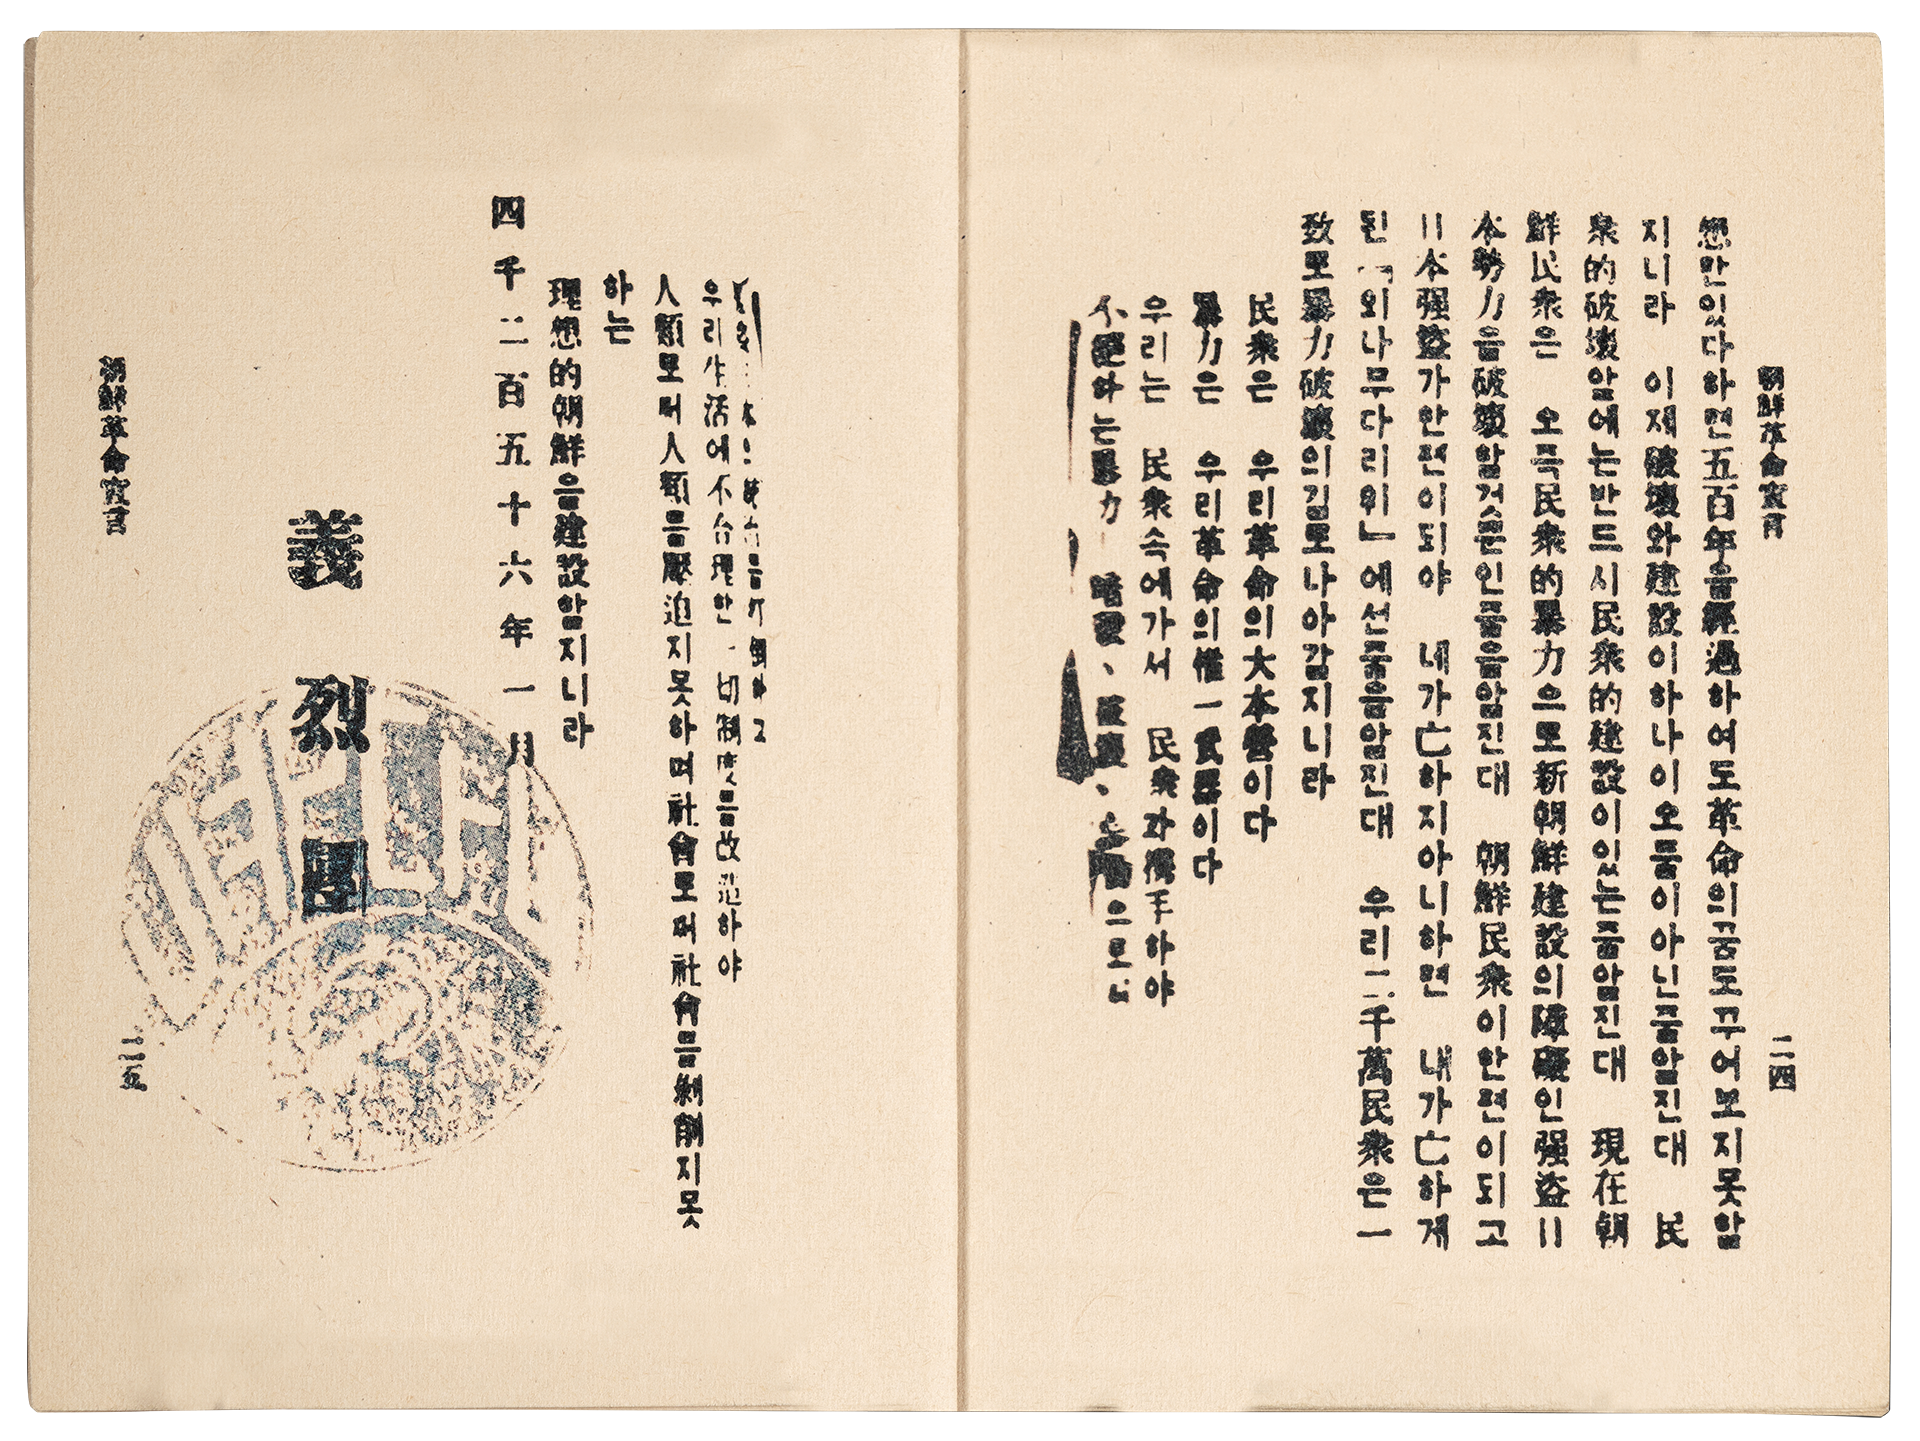 朝鮮革命宣言
二四
想만잇다하면五百年을經過하여도革命의꿈도꾸어보지못할
지니라 이제破壞와建設이하나이오둘이아닌줄알진대 民
衆的破壞앞에는반드시民衆的建設이잇는줄알진대 現在朝
鮮民衆은 오즉民衆的暴力으로新朝鮮建設의障礙인强盜日
本勢力을破壞할것뿐인줄을알진대 朝鮮民衆이한편이되고
日本强盜가한편이되야 네가亡하지아니하면 내가亡하게
된「외나무다리위」에선줄을알진대 우리二千萬民衆은一
致로暴力破壞의길로나아갈지니라
民衆은 우리革命의大本營이다
暴力은 우리革命의惟一武器이다
우리는 民衆속에가서 民衆과携手하야
不絕하는暴力 暗殺、破壞、으로
우리生活에不合理한一切制度를改造하야
人類로써人類를壓迫지못하며社會로써社會를剝削지못
하는
理想的朝鮮을建設할지니라
四千二百五十六年一月
義烈團
朝鮮革命宣言
二五